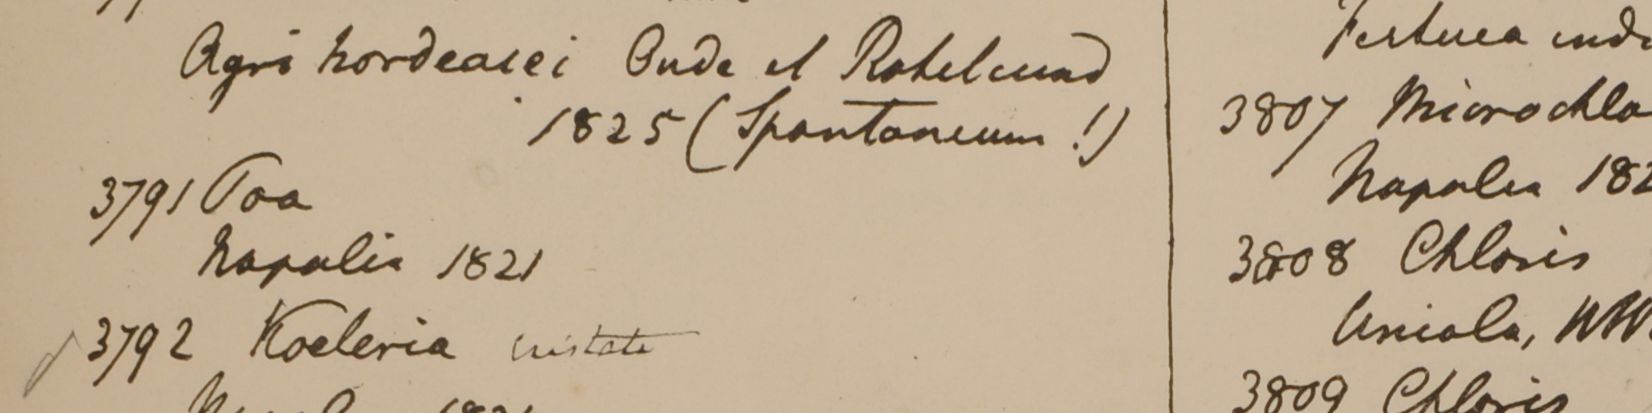 Agri hordeacei Oude et Rohelcund
1825 (Spontaneum!)
3791 Poa
Napalia 1821
3792 Koeleria cristata
1821
Festuca
3807 Microchlo
Napalia 182
3808 Chloris
Uniola,
3809 Chloris